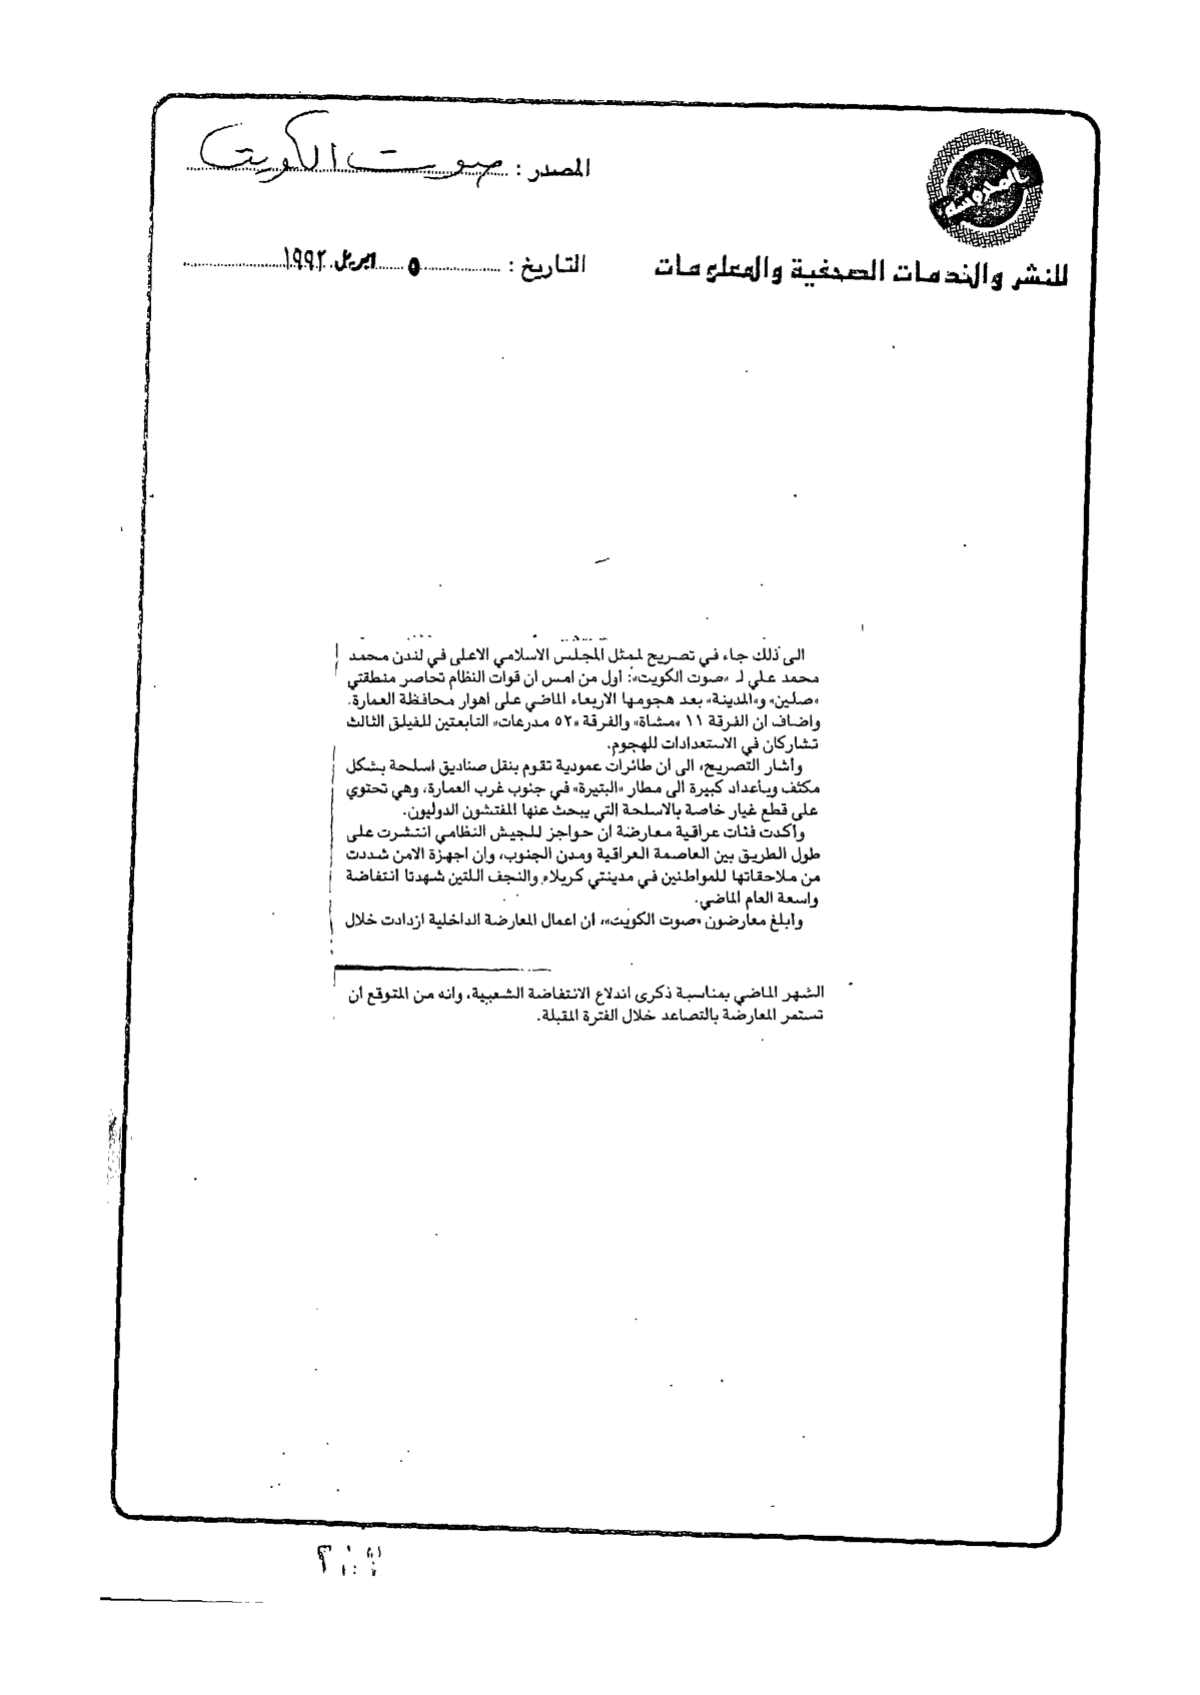 المصدر : صوت الكويت
المحروسة
للنشر والخدمات الصحفية والمعلومات
التاريخ : ٥ ابريل ١٩٩٢
الى ذلك جاء في تصريح لممثل المجلس الاسلامي الاعلى في لندن محمد
محمد علي لـ «صوت الكويت»: أول من امس ان قوات النظام تحاصر منطقتي
«صلين» و«المدينة» بعد هجومها الاربعاء الماضي على اهوار محافظة العمارة.
واضاف ان الفرقة ١١ «مشاة» والفرقة «٥٢ مدرعات» التابعتين للفيلق الثالث
تشاركان في الاستعدادات للهجوم.
وأشار التصريح، الى ان طائرات عمودية تقوم بنقل صناديق اسلحة بشكل
مكثف وبأعداد كبيرة الى مطار «البتيرة» في جنوب غرب العمارة، وهي تحتوي
على قطع غيار خاصة بالاسلحة التي يبحث عنها المفتشون الدوليون.
وأكدت فئات عراقية معارضة ان حواجز للجيش النظامي انتشرت على
طول الطريق بين العاصمة العراقية ومدن الجنوب، وان اجهزة الامن شددت
من ملاحقاتها للمواطنين في مدينتي كربلاء والنجف اللتين شهدتا انتفاضة
واسعة العام الماضي.
وأبلغ معارضون «صوت الكويت»، ان اعمال المعارضة الداخلية ازدادت خلال
الشهر الماضي بمناسبة ذكرى اندلاع الانتفاضة الشعبية، وانه من المتوقع ان
تستمر المعارضة بالتصاعد خلال الفترة المقبلة.